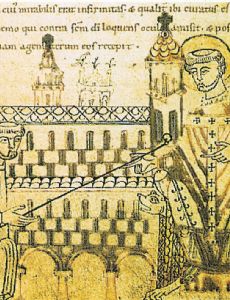 cui mirabilis erat infirmitas & qualit ibi curatus es
emo qui contra sem di loquens oculos amisit & pos
uam agens rerum eos recepit.